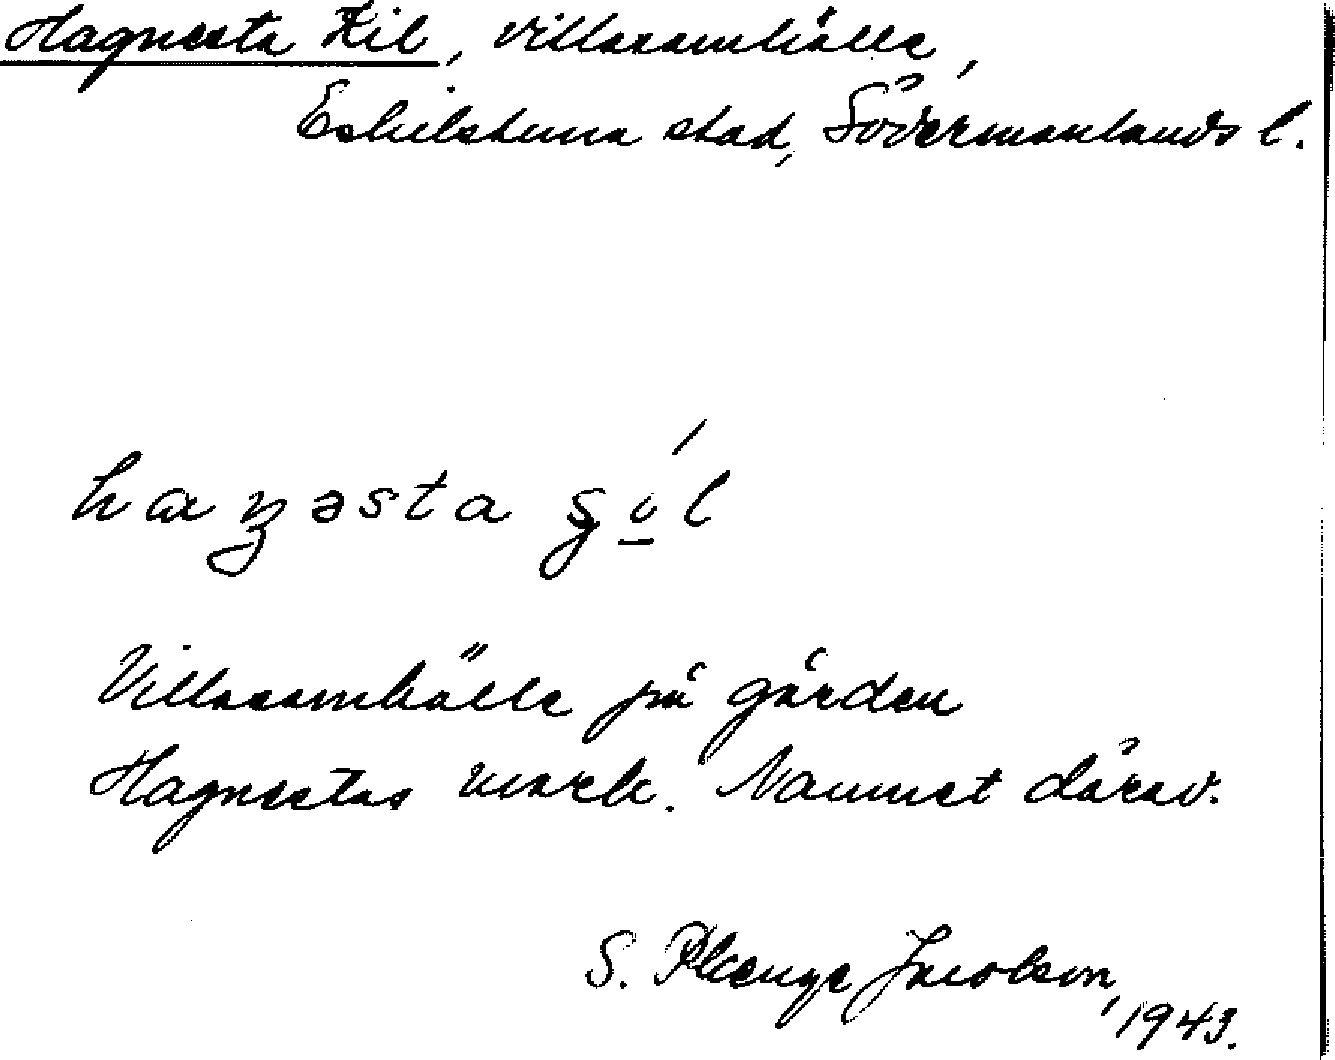 Hagnesta Kil, villasamhälle,
Eskilstuna stad, Södermanlands l.
Villasamhälle på gården
Hagnestas mark. Namnet därav.
S. Plænge Jacobson, 1943.